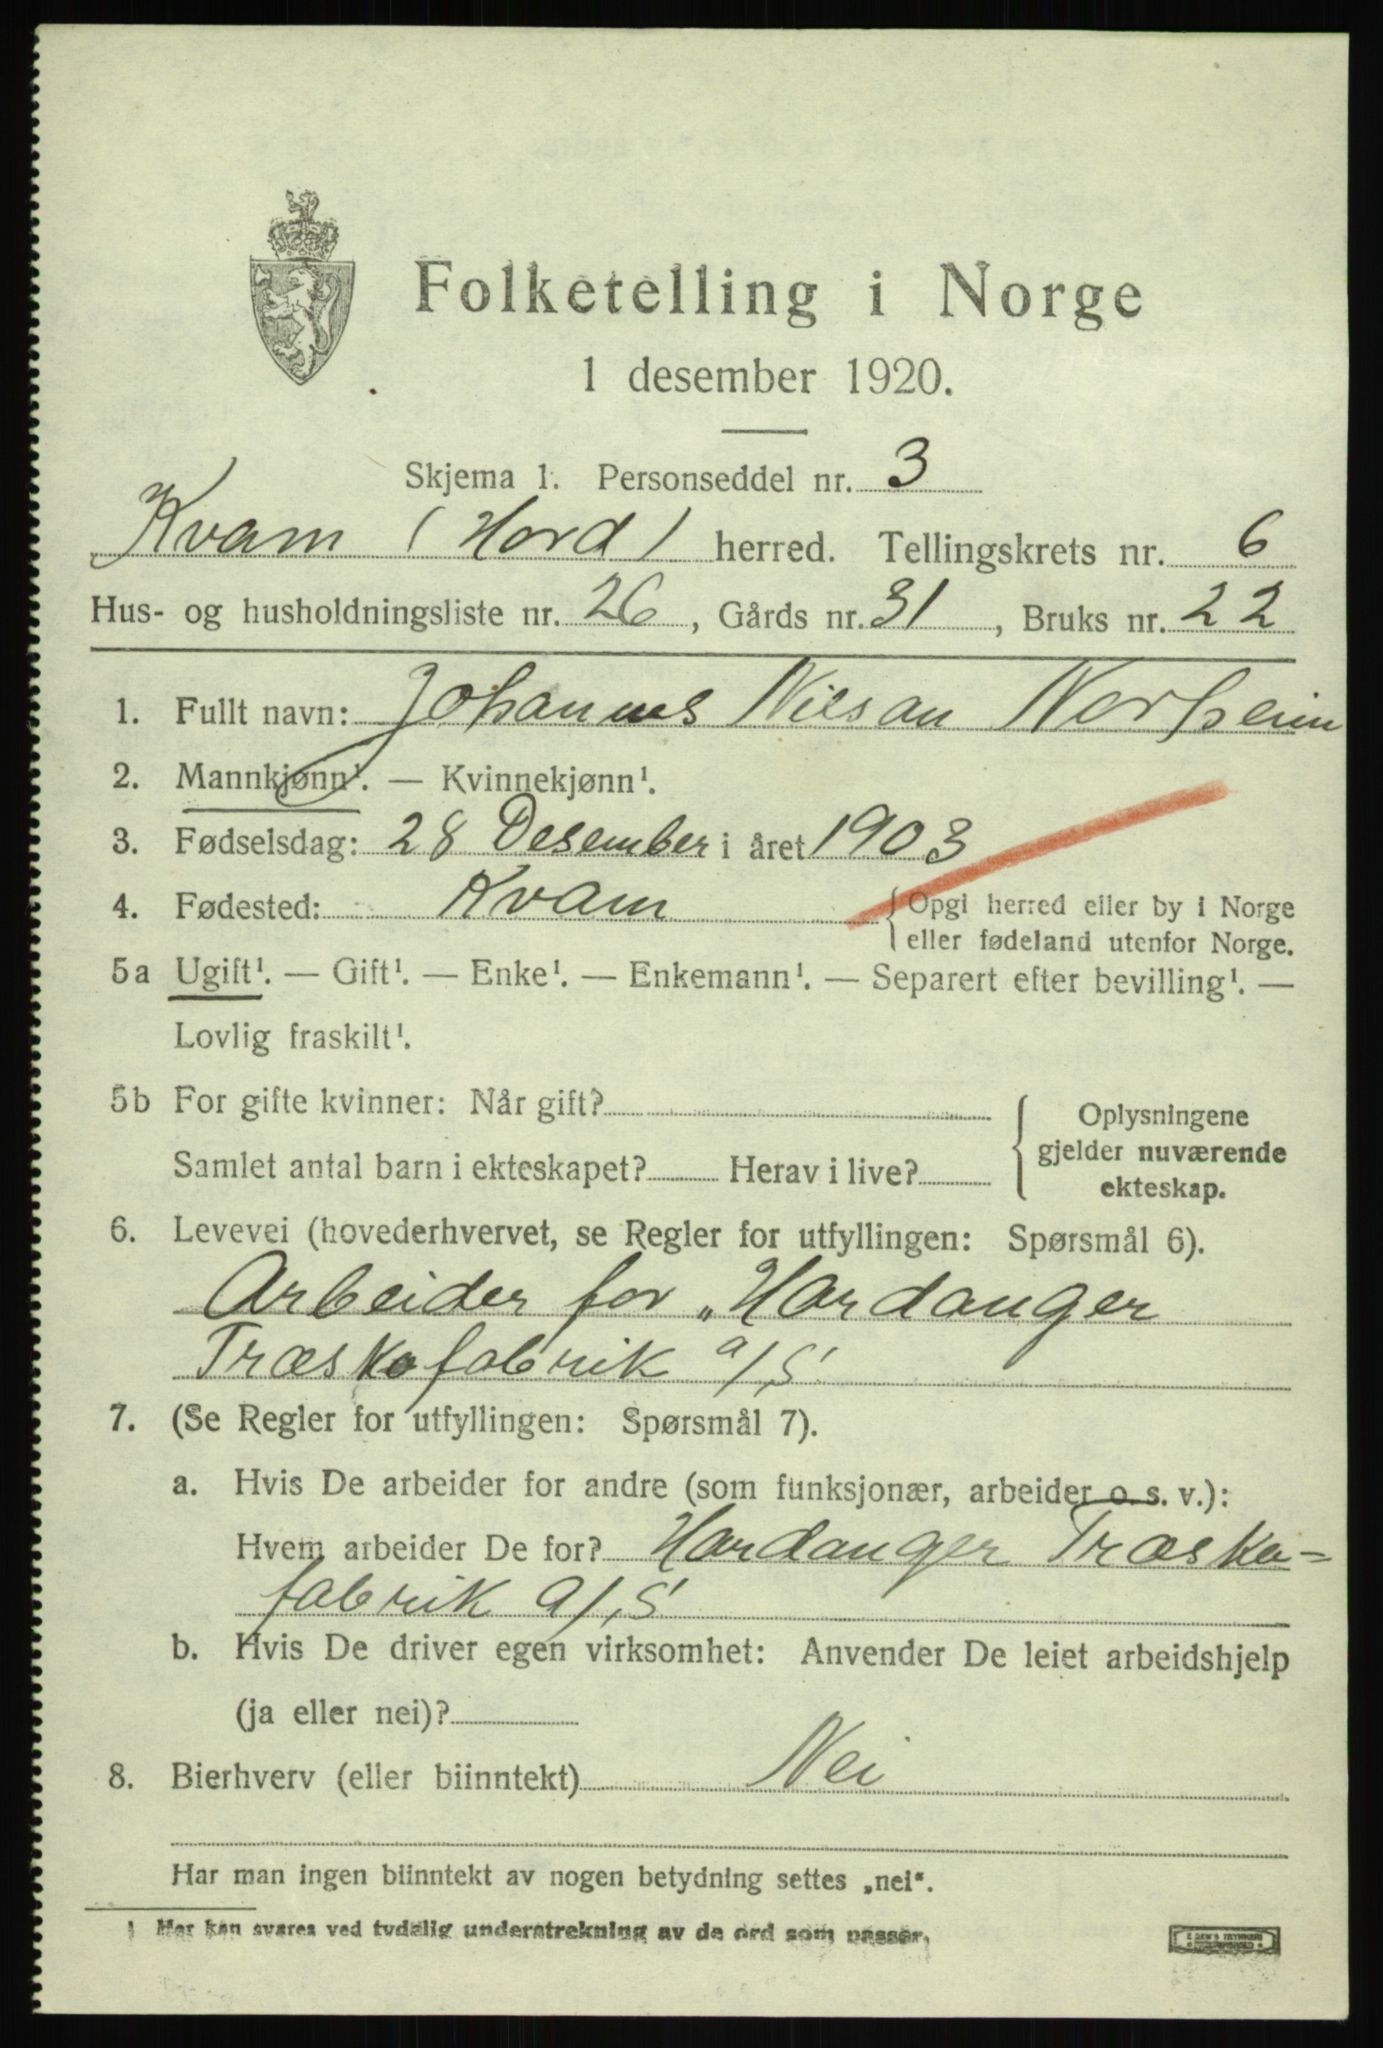 Folketelling i Norge
1 desember 1920.
Skjema 1. Personseddel nr. 3
Kvam (Hord) herred. Tellingskrets nr. 6
Hus- og husholdningsliste nr. 26, Gårds nr. 31, Bruks nr. 22
1. Fullt navn: Johannes Nilsan Norheim
2. Mannkjønn¹. — Kvinnekjønn¹.
3. Fødselsdag: 28 Desember i året 1903
4. Fødested: Kvam {Opgi herred eller by i Norge
eller fødeland utenfor Norge.
5a Ugift¹. — Gift¹. — Enke¹. — Enkemann¹. — Separert efter bevilling¹. —
Lovlig fraskilt¹.
5b For gifte kvinner: Når gift?
Samlet antal barn i ekteskapet? Herav i live?
{ Oplysningene
gjelder nuværende
ekteskap.
6. Levevei (hovederhvervet, se Regler for utfyllingen: Spørsmål 6).
Arbeider for „Hardanger
Træskofabrik a/S
7. (Se Regler for utfyllingen: Spørsmål 7).
a. Hvis De arbeider for andre (som funksjonær, arbeider o. s. v.):
Hvem arbeider De for? Hardanger Træsko=
fabrik a/S
b. Hvis De driver egen virksomhet: Anvender De leiet arbeidshjelp
(ja eller nei)?
8. Bierhverv (eller biinntekt) Nei
Har man ingen biinntekt av nogen betydning settes „nei“.
¹ Her kan svares ved tydelig understrekning av de ord som passer.